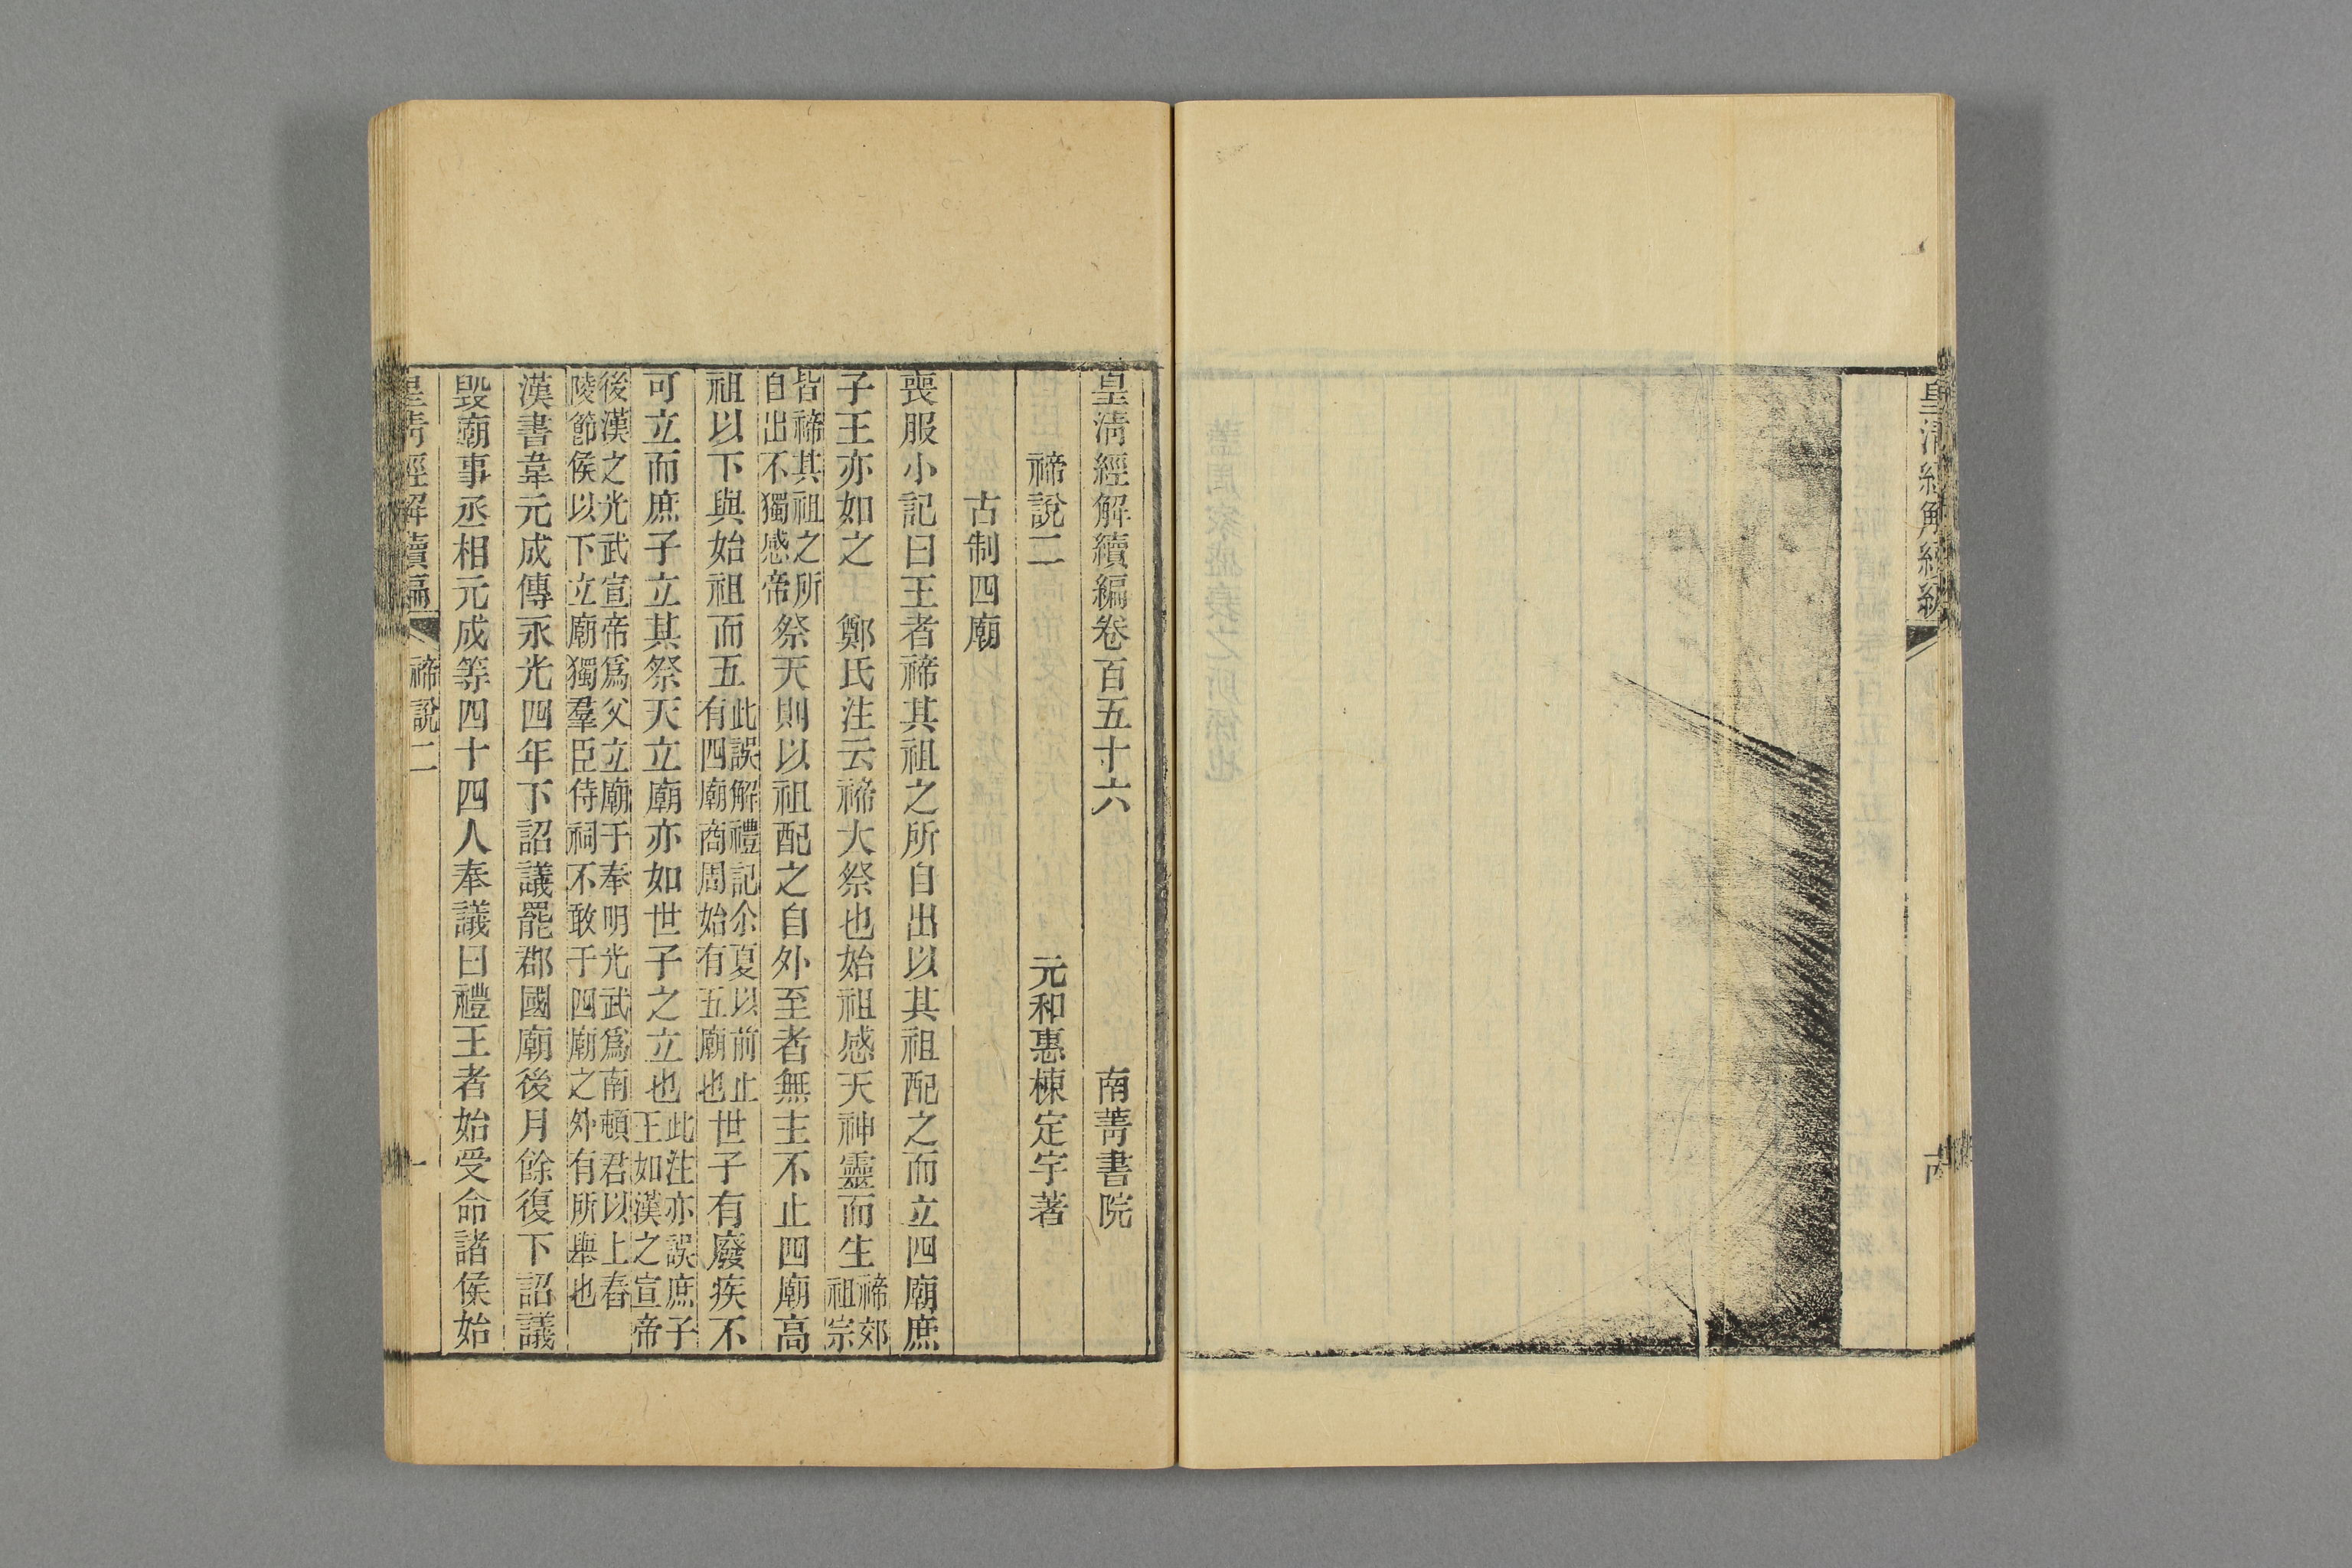 皇清經解續編
皇清經解續編卷百五十六 南菁書院
禘說二 元和惠棟定宇著
古制四廟
喪服小記曰王者禘其祖之所自出以其祖配之而立四廟庶
子王亦如之 鄭氏注云禘大祭也始祖感天神靈而生禘郊祖宗
皆禘其祖之所自出不獨感帝祭天則以祖配之自外至者無主不止四廟高
祖以下與始祖而五此誤解禮記尒夏以前止有四廟商周始有五廟也世子有廢疾不
可立而庶子立其祭天立廟亦如世子之立也此注亦誤庶子王如漢之宣帝
後漢之光武宣帝爲父立廟于奉明光武爲南頓君以上舂陵節侯以下立廟獨羣臣侍祠不敢于四廟之外有所舉也
漢書韋元成傳永光四年下詔議罷郡國廟後月餘復下詔議
毀廟事丞相元成等四十四人奉議曰禮王者始受命諸侯始
皇清經解續編 禘說二 一